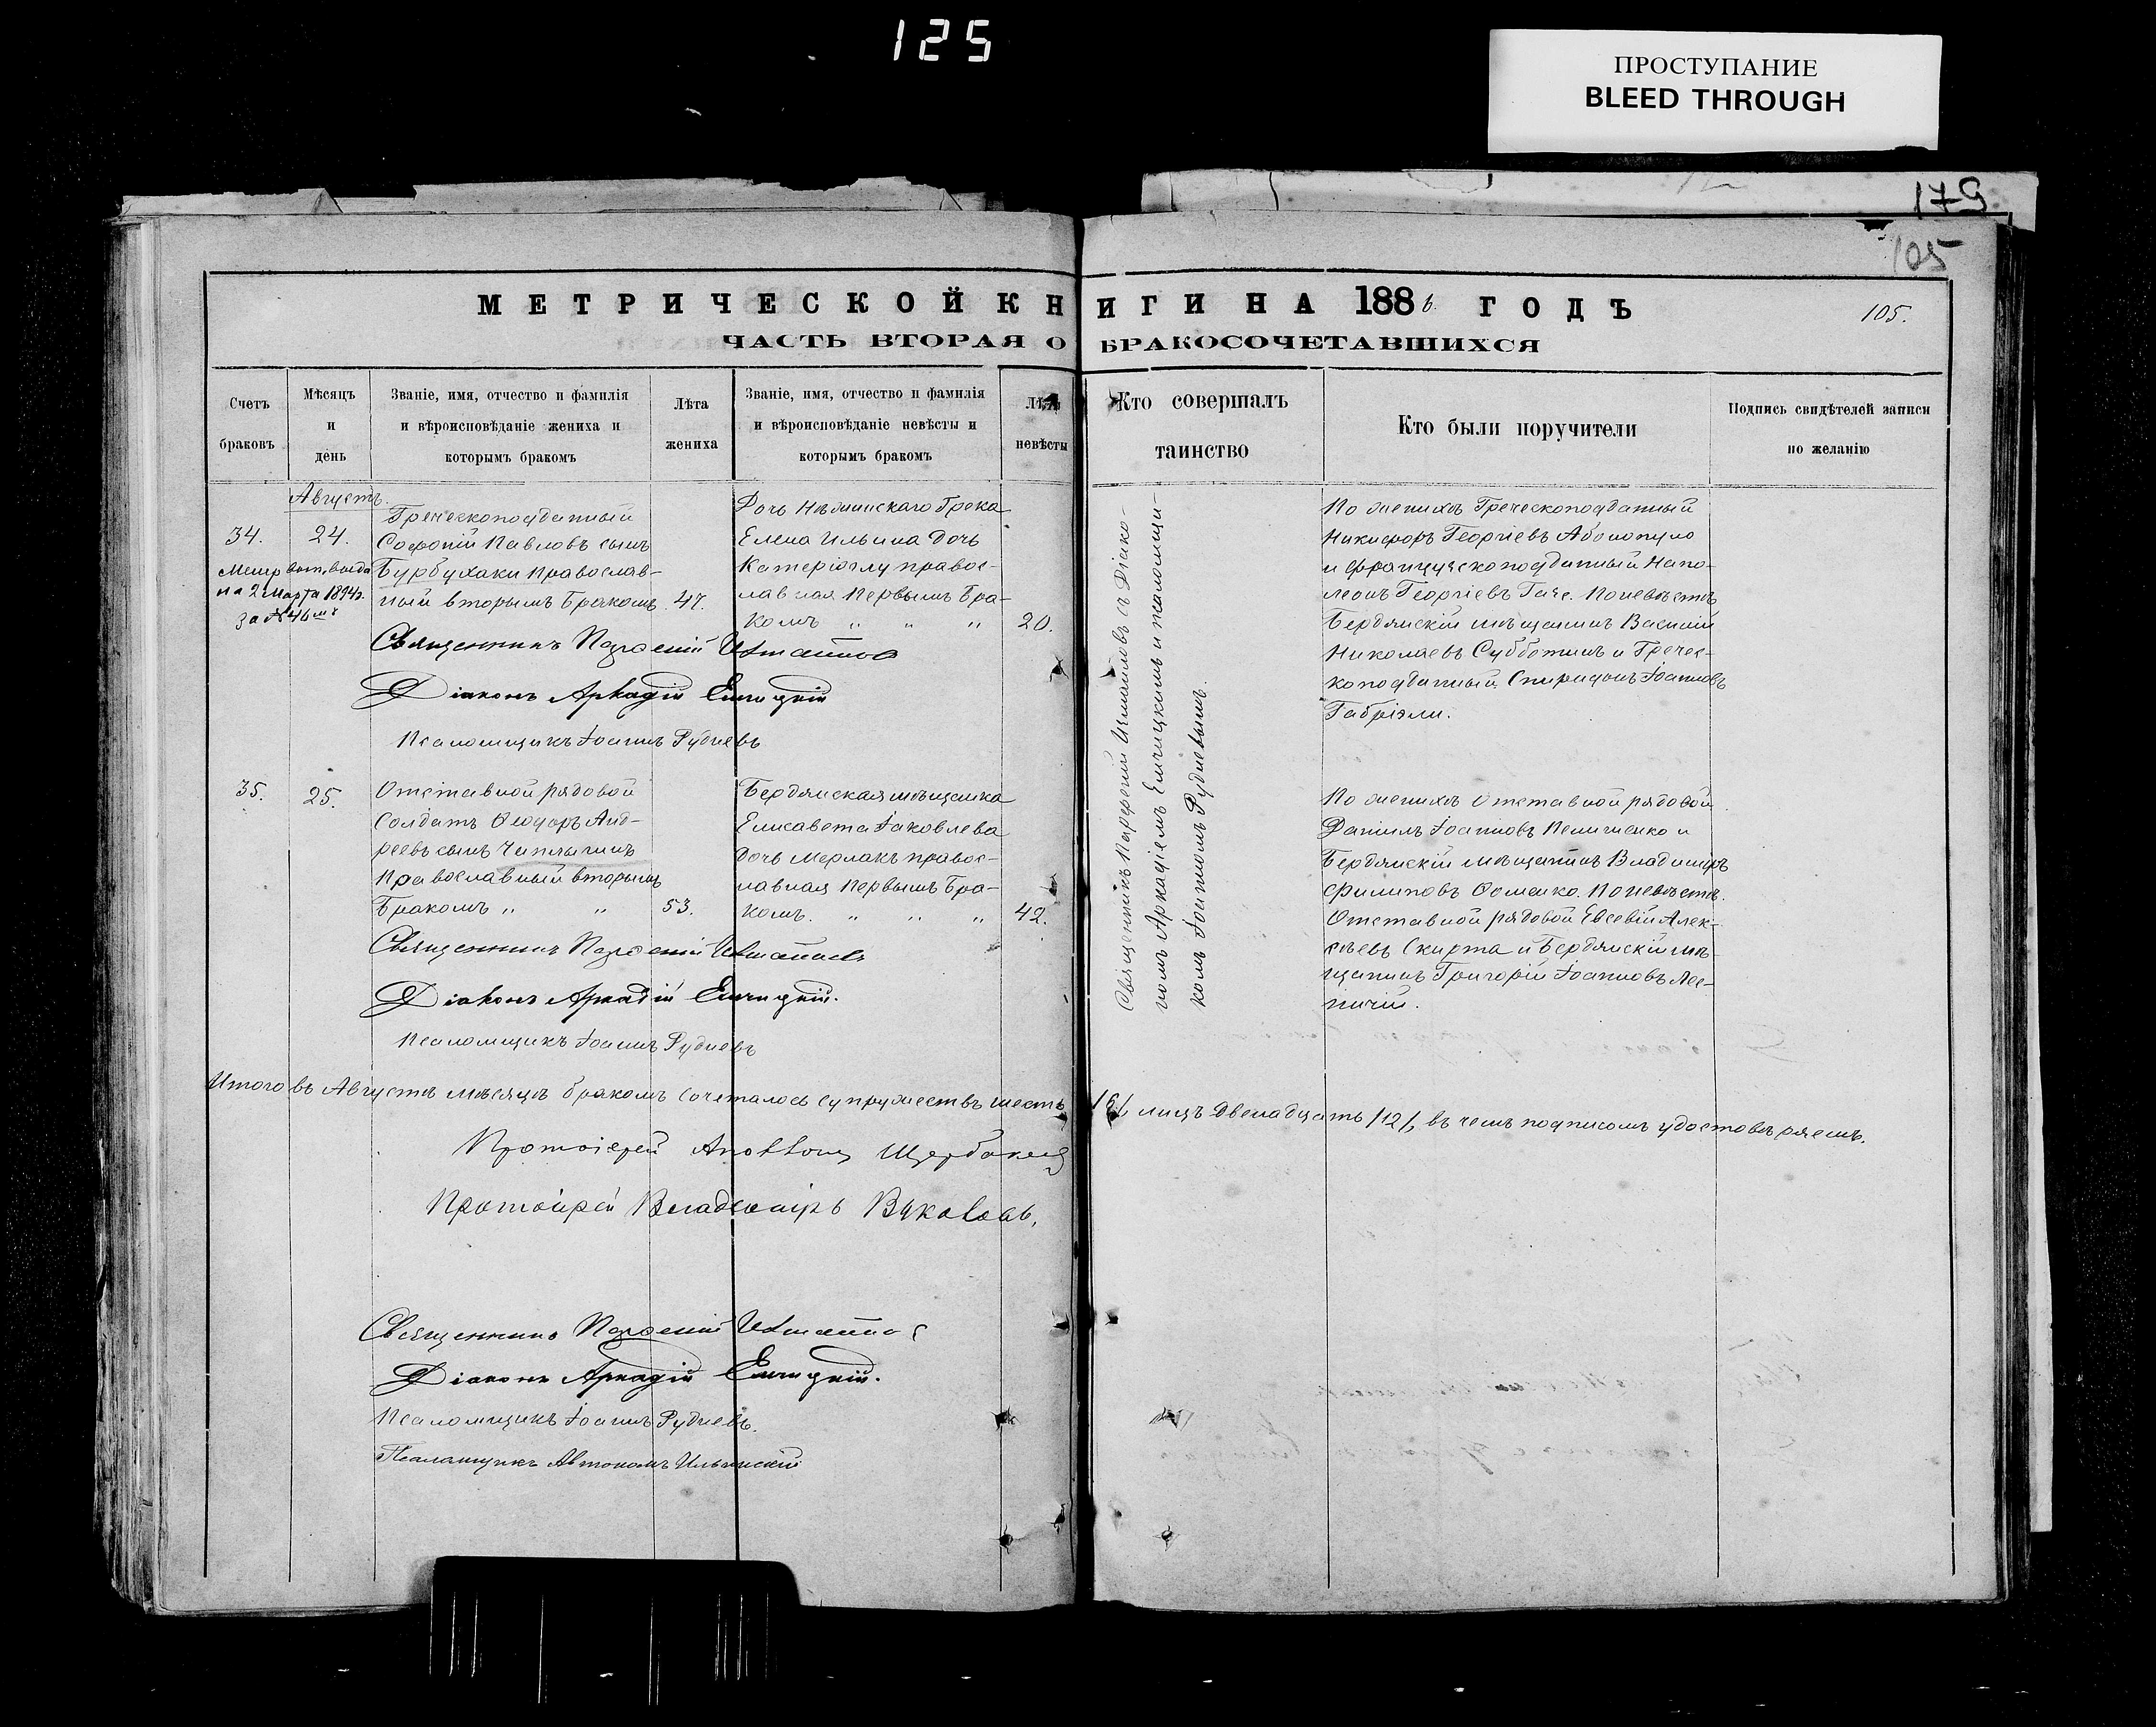 125
ПРОСТУПАНИЕ
BLEED THROUGH
179
105
МЕТРИЧЕСКОЙ КНИГИ НА 1886 ГОДЪ
105.
ЧАСТЬ ВТОРАЯ О БРАКОСОЧЕТАВШИХСЯ
Счетъ
браковъ
Мѣсяцъ
и
день
Званіе, имя, отчество и фамилія
и вѣроисповѣданіе жениха и
которымъ бракомъ
Лѣта
жениха
Званіе, имя, отчество и фамилія
и вѣроисповѣданіе невѣсты и
которымъ бракомъ
Лѣта
невѣсты
Кто совершалъ
таинство
Кто были поручители
Подпись свидѣтелей записи
по желанію
Августъ.
34.
24.
на 2 Марта 1894г.
за № 46мъ
Греческоподданный
Софоній Павловъ сынъ
Бурбухаки Православ-
ный вторымъ Бракомъ
47.
Дочь Нѣжинскаго Грека
Елена Ильина Дочь
Катеріоглу правос-
лавная Первымъ Бра-
комъ " " "
20.
Священникъ Парѳеній Измаиловъ съ Діако-
номъ Аркадіемъ Енчицкимъ и псаломщи-
комъ Іоанномъ Рудневымъ.
По женихѣ Греческоподданный
Никифоръ Георгіевъ
и французскоподданный Напо-
леонъ Георгіевъ По невѣстѣ
Бердянскій мѣщанинъ Василій
Николаевъ Субботинъ и Гречес-
коподданный Спиридонъ Іоанновъ
Габріэли.
Священникъ Парѳеній Измаиловъ
Діаконъ Аркадій Енчицкій
Псаломщикъ Іоаннъ Рудневъ
35.
25.
Отставной рядовой
Солдатъ Ѳеодоръ Анд-
реевъ сынъ Чаплыгинъ
Православный вторымъ
Бракомъ " "
53.
Бердянская мѣщанка
Елисавета Іаковлева
дочь Мерлакъ правос-
лавная Первымъ Бра-
комъ. " " "
42.
По женихѣ Отставной рядовой
Даніилъ Іоанновъ и
Бердянскій мѣщанинъ Владиміръ
Филиповъ По невѣстѣ.
Отставной рядовой Евсевій Алек-
сѣевъ Скирта и Бердянскій мѣ-
щанинъ Григорій Іоанновъ Лес-
ничій.
Священникъ Парѳеній Измаиловъ
Діаконъ Аркадій Енчицкій.
Псаломщикъ Іоаннъ Рудневъ
Итого въ Августѣ мѣсяцѣ бракомъ сочеталось супружествъ шесть /6/, лицъ двенадцать /12/, въ чемъ подписомъ удостовѣряемъ.
Протоіерей
Протоіерей Владиміръ
Священникъ Парѳеній Измаиловъ
Діаконъ Аркадій Енчицкій.
Псаломщикъ Іоаннъ Рудневъ.
Псаломщикъ Автономъ Ильинскій